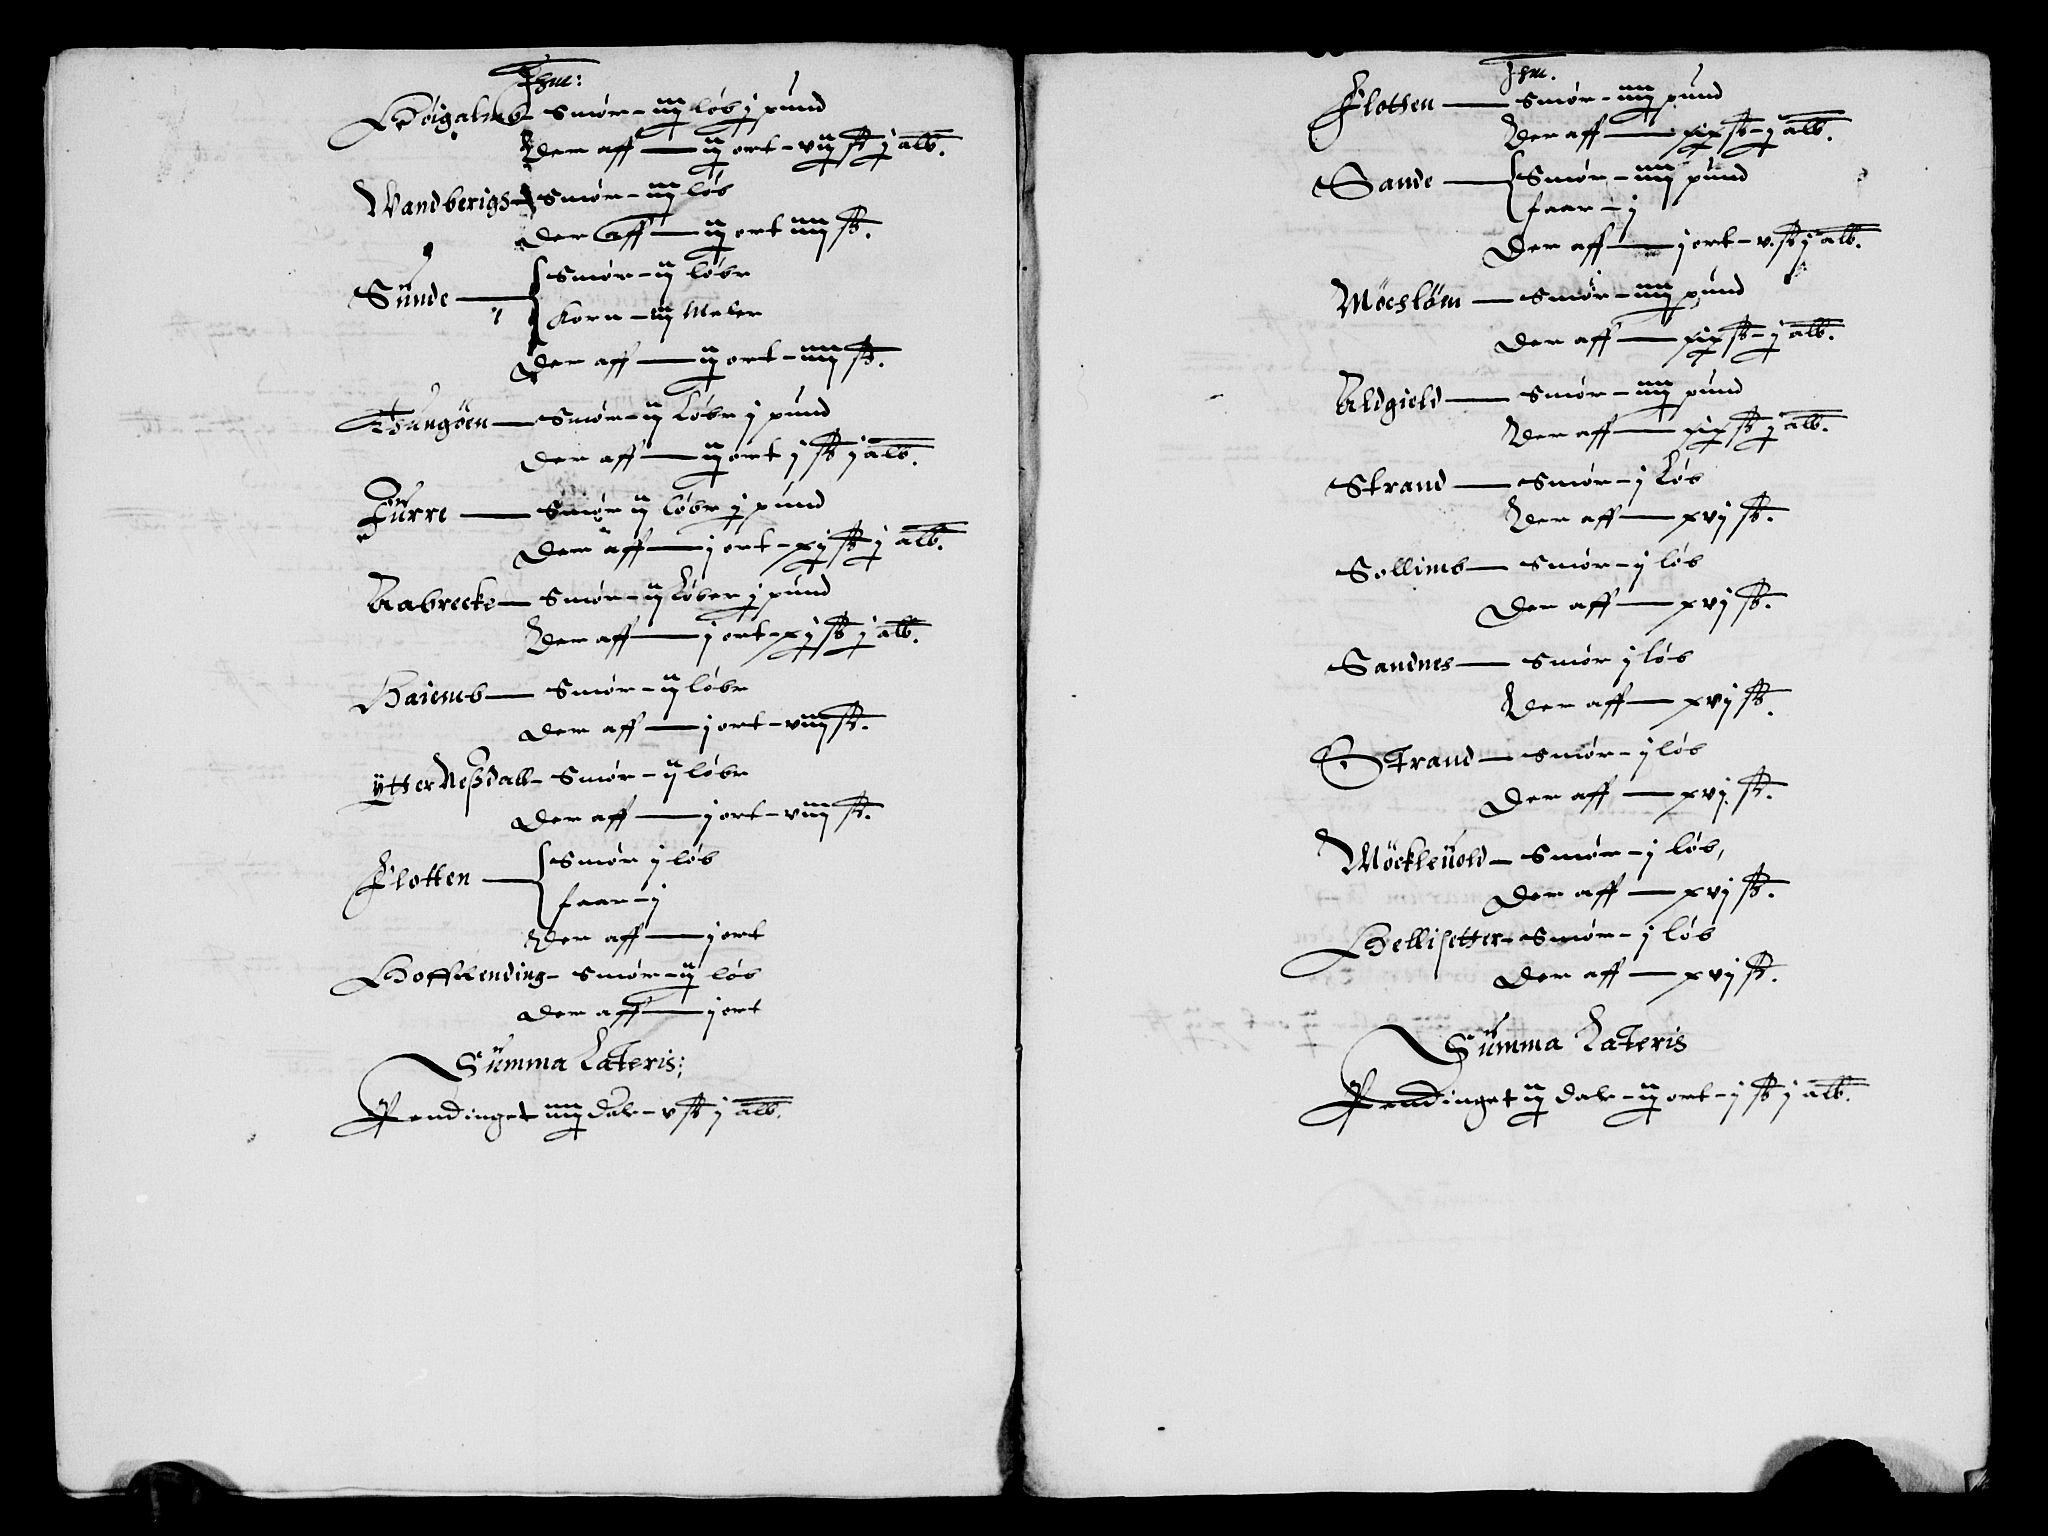 Item:
Høigalmb – Smør – iij løb j pund
Der aff — ij ort – viij ß j alb.
Wandberigs – Smør – iij løb
Der aff — ij ort iiij ß.
Sünde — Smør – ij løbr
Korn – iij Meler
Der aff — ij ort – iiij ß.
Thungöen — Smør – ij Løbr j pund
Der aff — ij ort j ß j alb.
Fürre — Smør ij løbr j pund
Der aff — j ort – xij ß j alb.
Aabrecke — Smør – ij Løber j pund
Der aff — j ort – xij ß j alb.
Haiemb — Smør – ij løbr
Der aff — j ort – viij ß.
ÿtter Neßdall – Smør – ij løbr
Der aff — j ort – viij ß.
Flotten — Smør j løb
faar – j
Der aff — j ort
Hofflending – Smør – ij løb
Der aff — j ort
Summa Lateris:
Pendinget iiij dalr – v ß j alb.
Item.
Flotten — Smør – iiij pund
Der aff — xix ß – j alb.
Sande — Smør – iiij pund
faar – j
Der aff — j ort – v. ß j alb.
Möcsløm — Smør – iiij pund
Der aff — xix ß – j alb.
Aldgield — Smør – iiij pund
Der aff — xix ß j alb.
Strand — Smør – j Løb
Der aff — xvj ß.
Sollimb — Smør – j løb
Der aff — xvj ß.
Sandnes — Smør j løb
Der aff — xvj ß.
Strand — Smør – j løb
Der aff — xvj. ß.
Möckleüold – Smør – j løb,
Der aff — xvj ß.
Hellisetter – Smør – j løb
Der aff — xvj ß.
Sümma Lateris
Pendinget ij dalr – ij ort – j ß j alb.